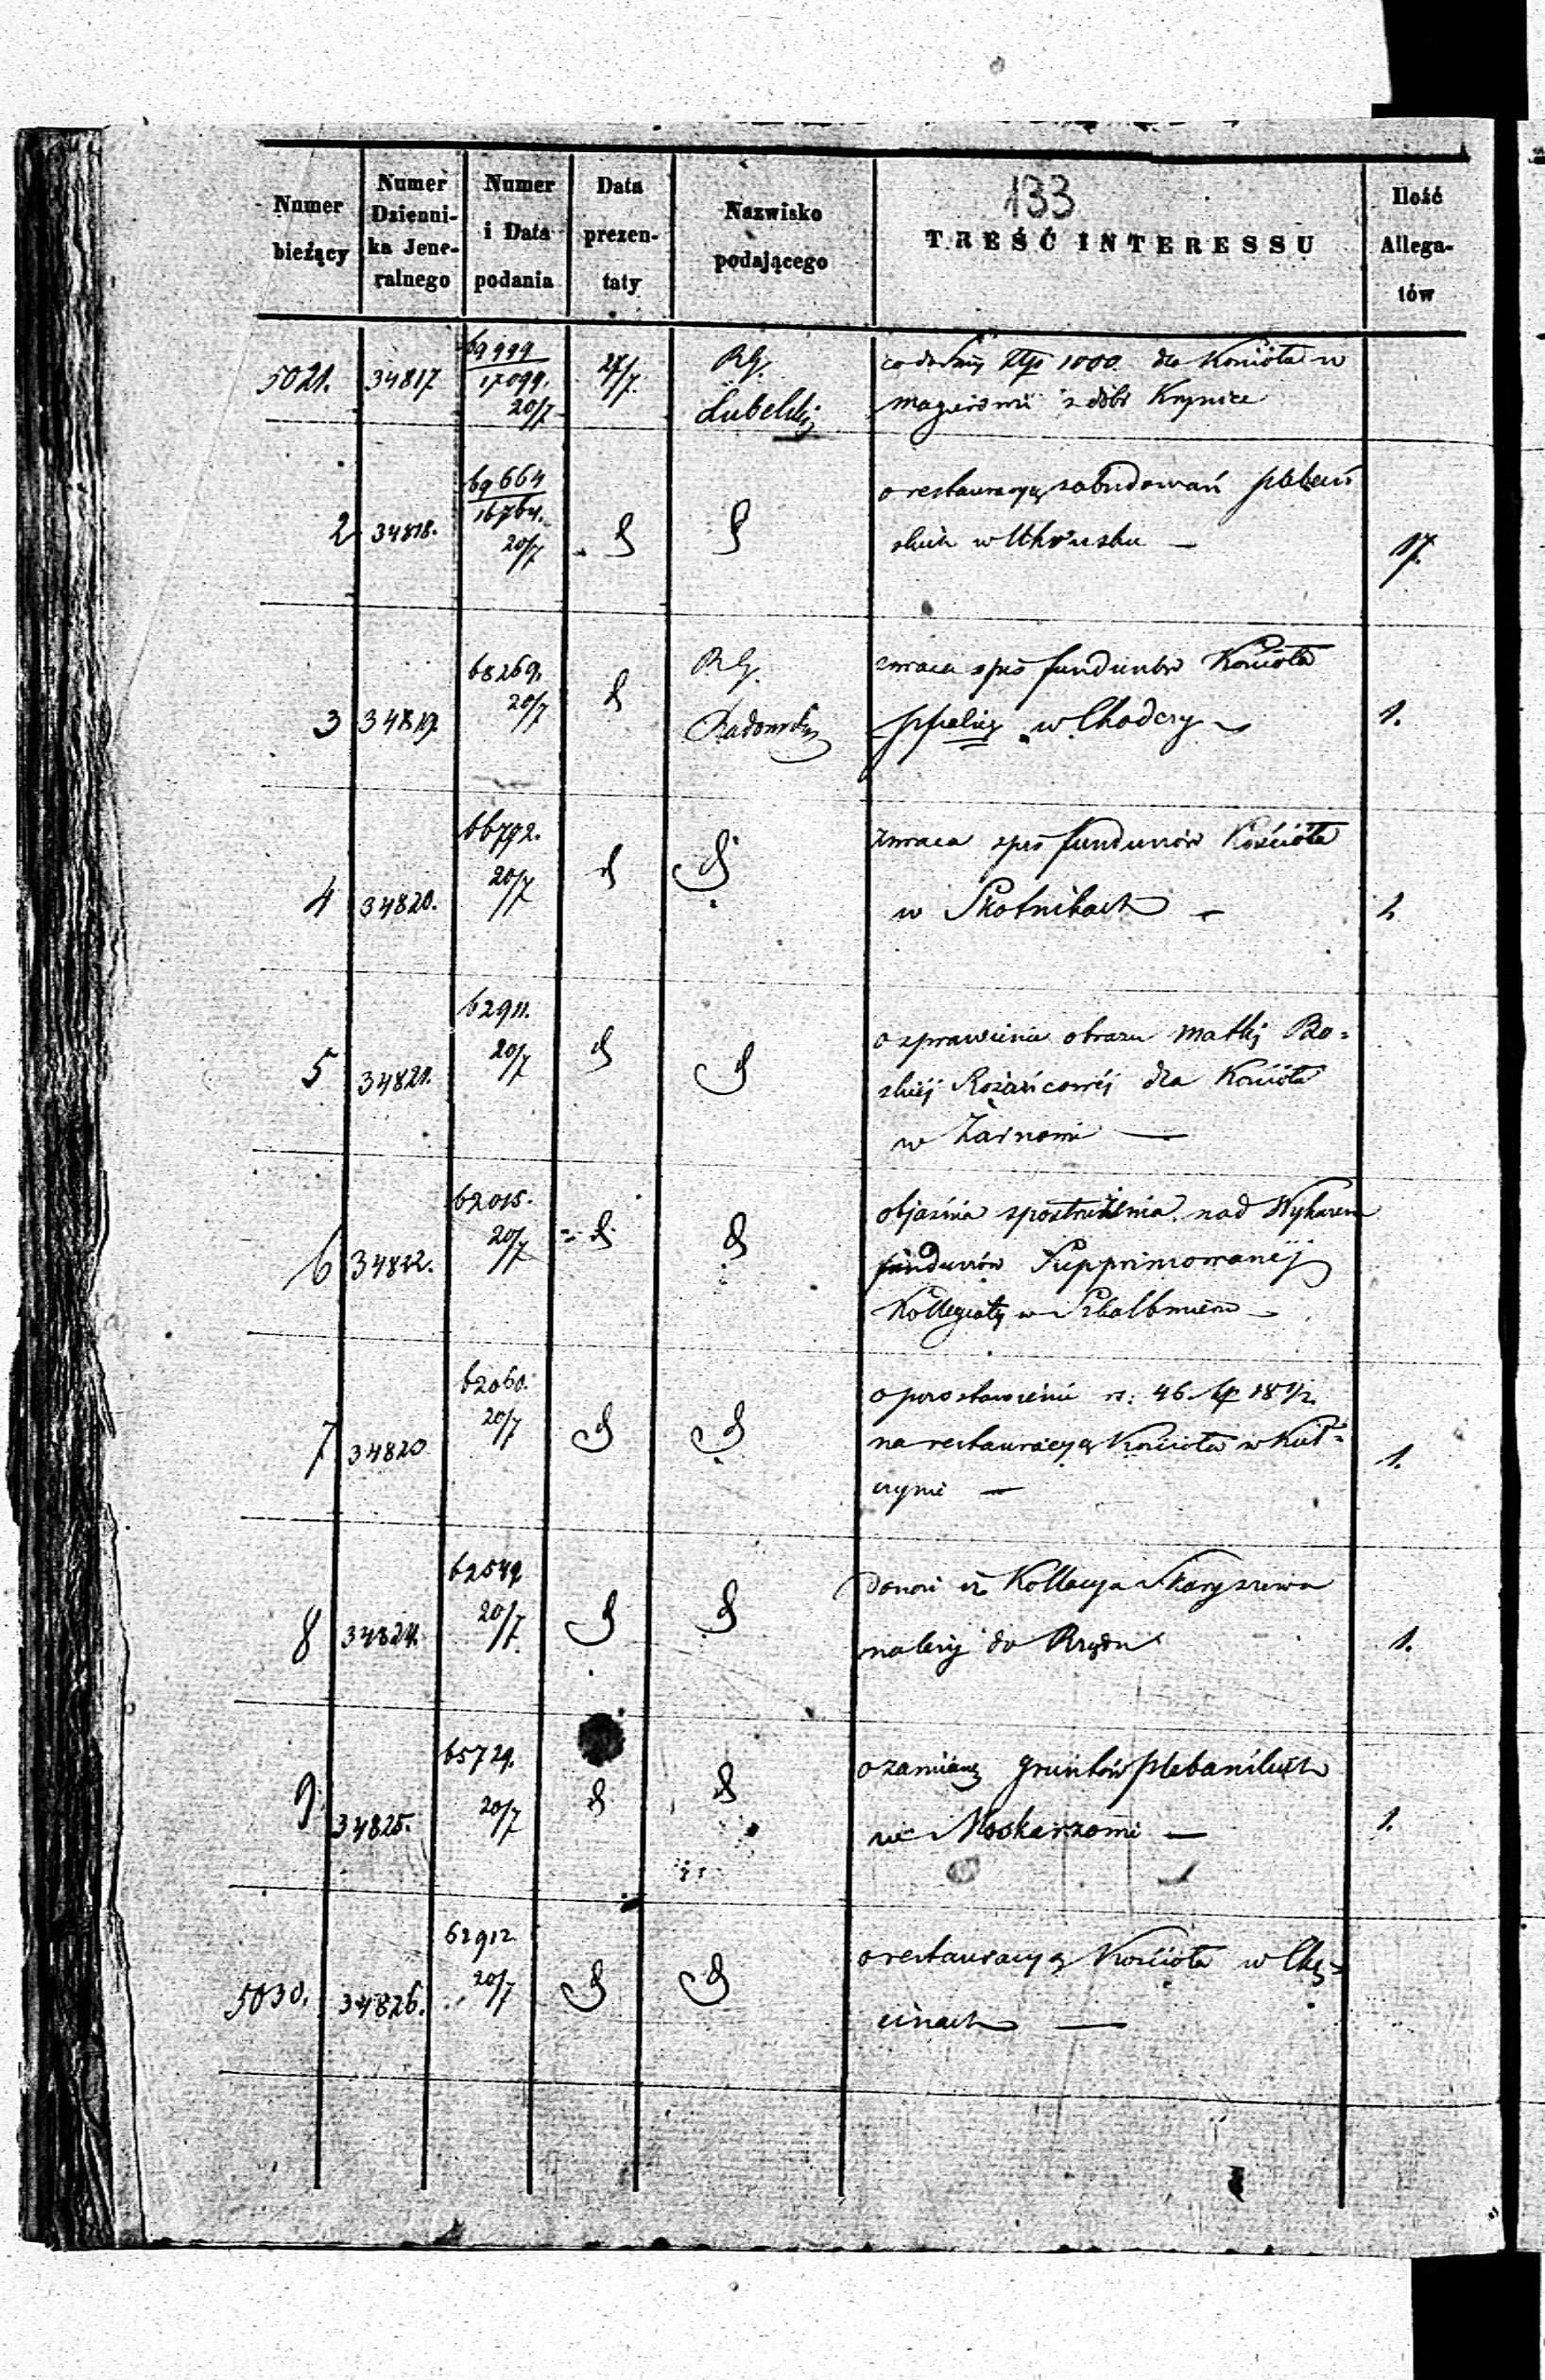 133
Numer bieżący
Numer Dzienni-ka Jene-ralnego
Numer i Data podania
Data prezen-taty
Nazwisko podającego
TREŚĆ INTERESSU
Ilość Allega-tów
5021. 34817 69999 / 17099. 20/7 27/7. RG. Lubelski
co do Złp 1000 dla Kościoła w
z dóbr Krynice
2 34818. 69664 / 16764. 20/7
o restauracyą zabudowań plebań
skich w Uhrusku — 17.
3 34819. 68269. 20/7 RG. Radomski
zwraca spis funduszów Kościoła
w Chodczy 1.
4 34820. 66792. 20/7
zwraca spis funduszów Kościoła
w Skotnikach —
5 34821. 62911. 20/7
o sprawienie obrazu Matki Bo=
skiej Rożańcowéj dla Kościoła
w Żarnowie —
6 34822. 62015. 20/7
objaśnia spostrzeżenia nad Wykazem
funduszów Supprimowanéj
Kollegiaty w Skalbmierzu
7 34820 62060. 20/7
o pozostawienie rs: 46. kp 18 1/2
na restauracyą Kościoła w Kut=
1.
8 34824. 62549 20/7
Donosi iż Kollacya Skaryszewa
należy do Rządu 1.
9 34825. 65729. 20/7
o zamianę gruntów plebańskich
w Mokarzowie — 1.
5030. 34826. 62912 20/7
o restauracyą Kościoła w Chę=
cinach —